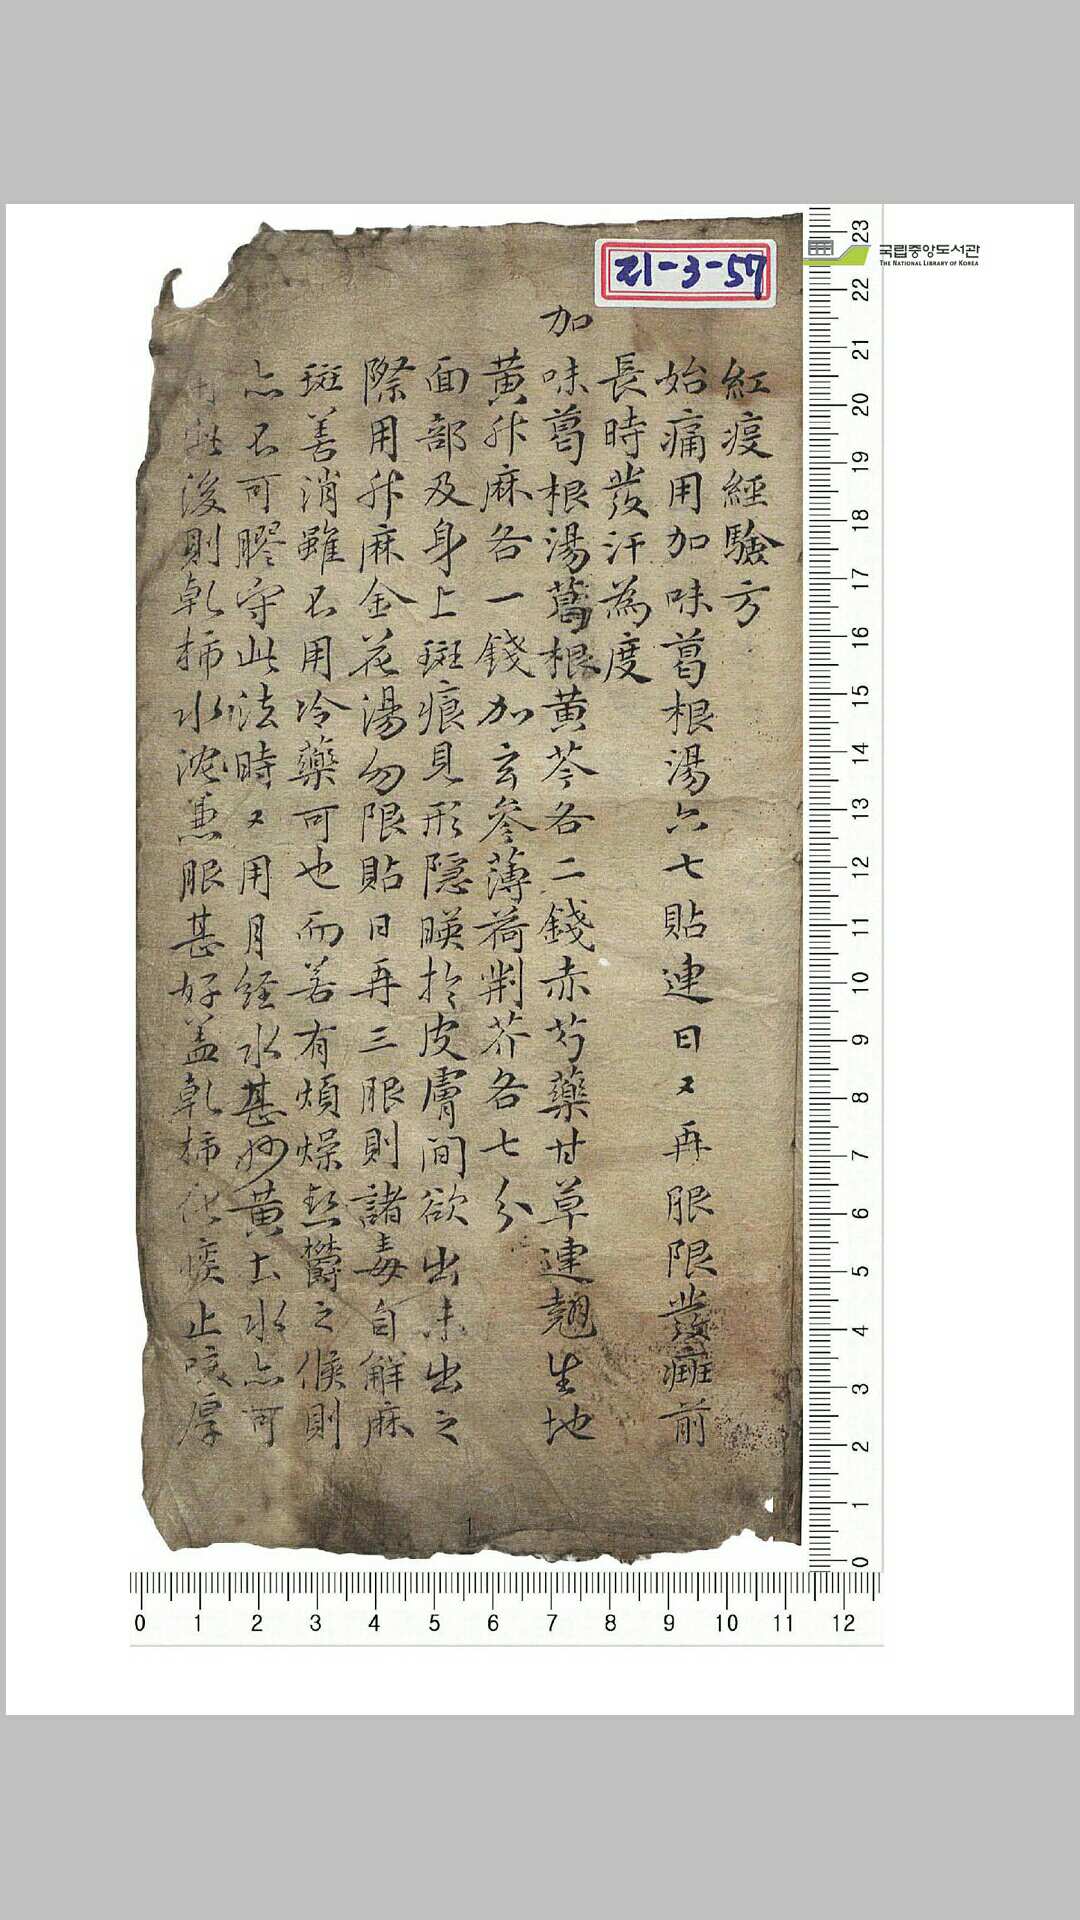 21-3-57
국립중앙도서관
THE NATIONAL LIBRARY OF KOREA
紅疫經驗方
始痛用加味葛根湯六七貼連日又再服限發癍前
長時發汗為度
加味葛根湯葛根黃芩各二錢赤芍藥甘草連翹生地
黃升麻各一錢加玄參薄荷荊芥各七分
面部及身上斑痕見形隱暎於皮膚間欲出未出之
際用升麻金花湯勿限貼日再三服則諸毒自解麻
斑善消雖不用冷藥可也而若有煩燥熱鬱之候則
亦不可膠守此法時又用月經水甚妙黃土水亦可
後則乾柿水沈兼服甚好盖乾柿化痰止咳厚
1
23
22
21
20
19
18
17
16
15
14
13
12
11
10
9
8
7
6
5
4
3
2
1
0
0 1 2 3 4 5 6 7 8 9 10 11 12